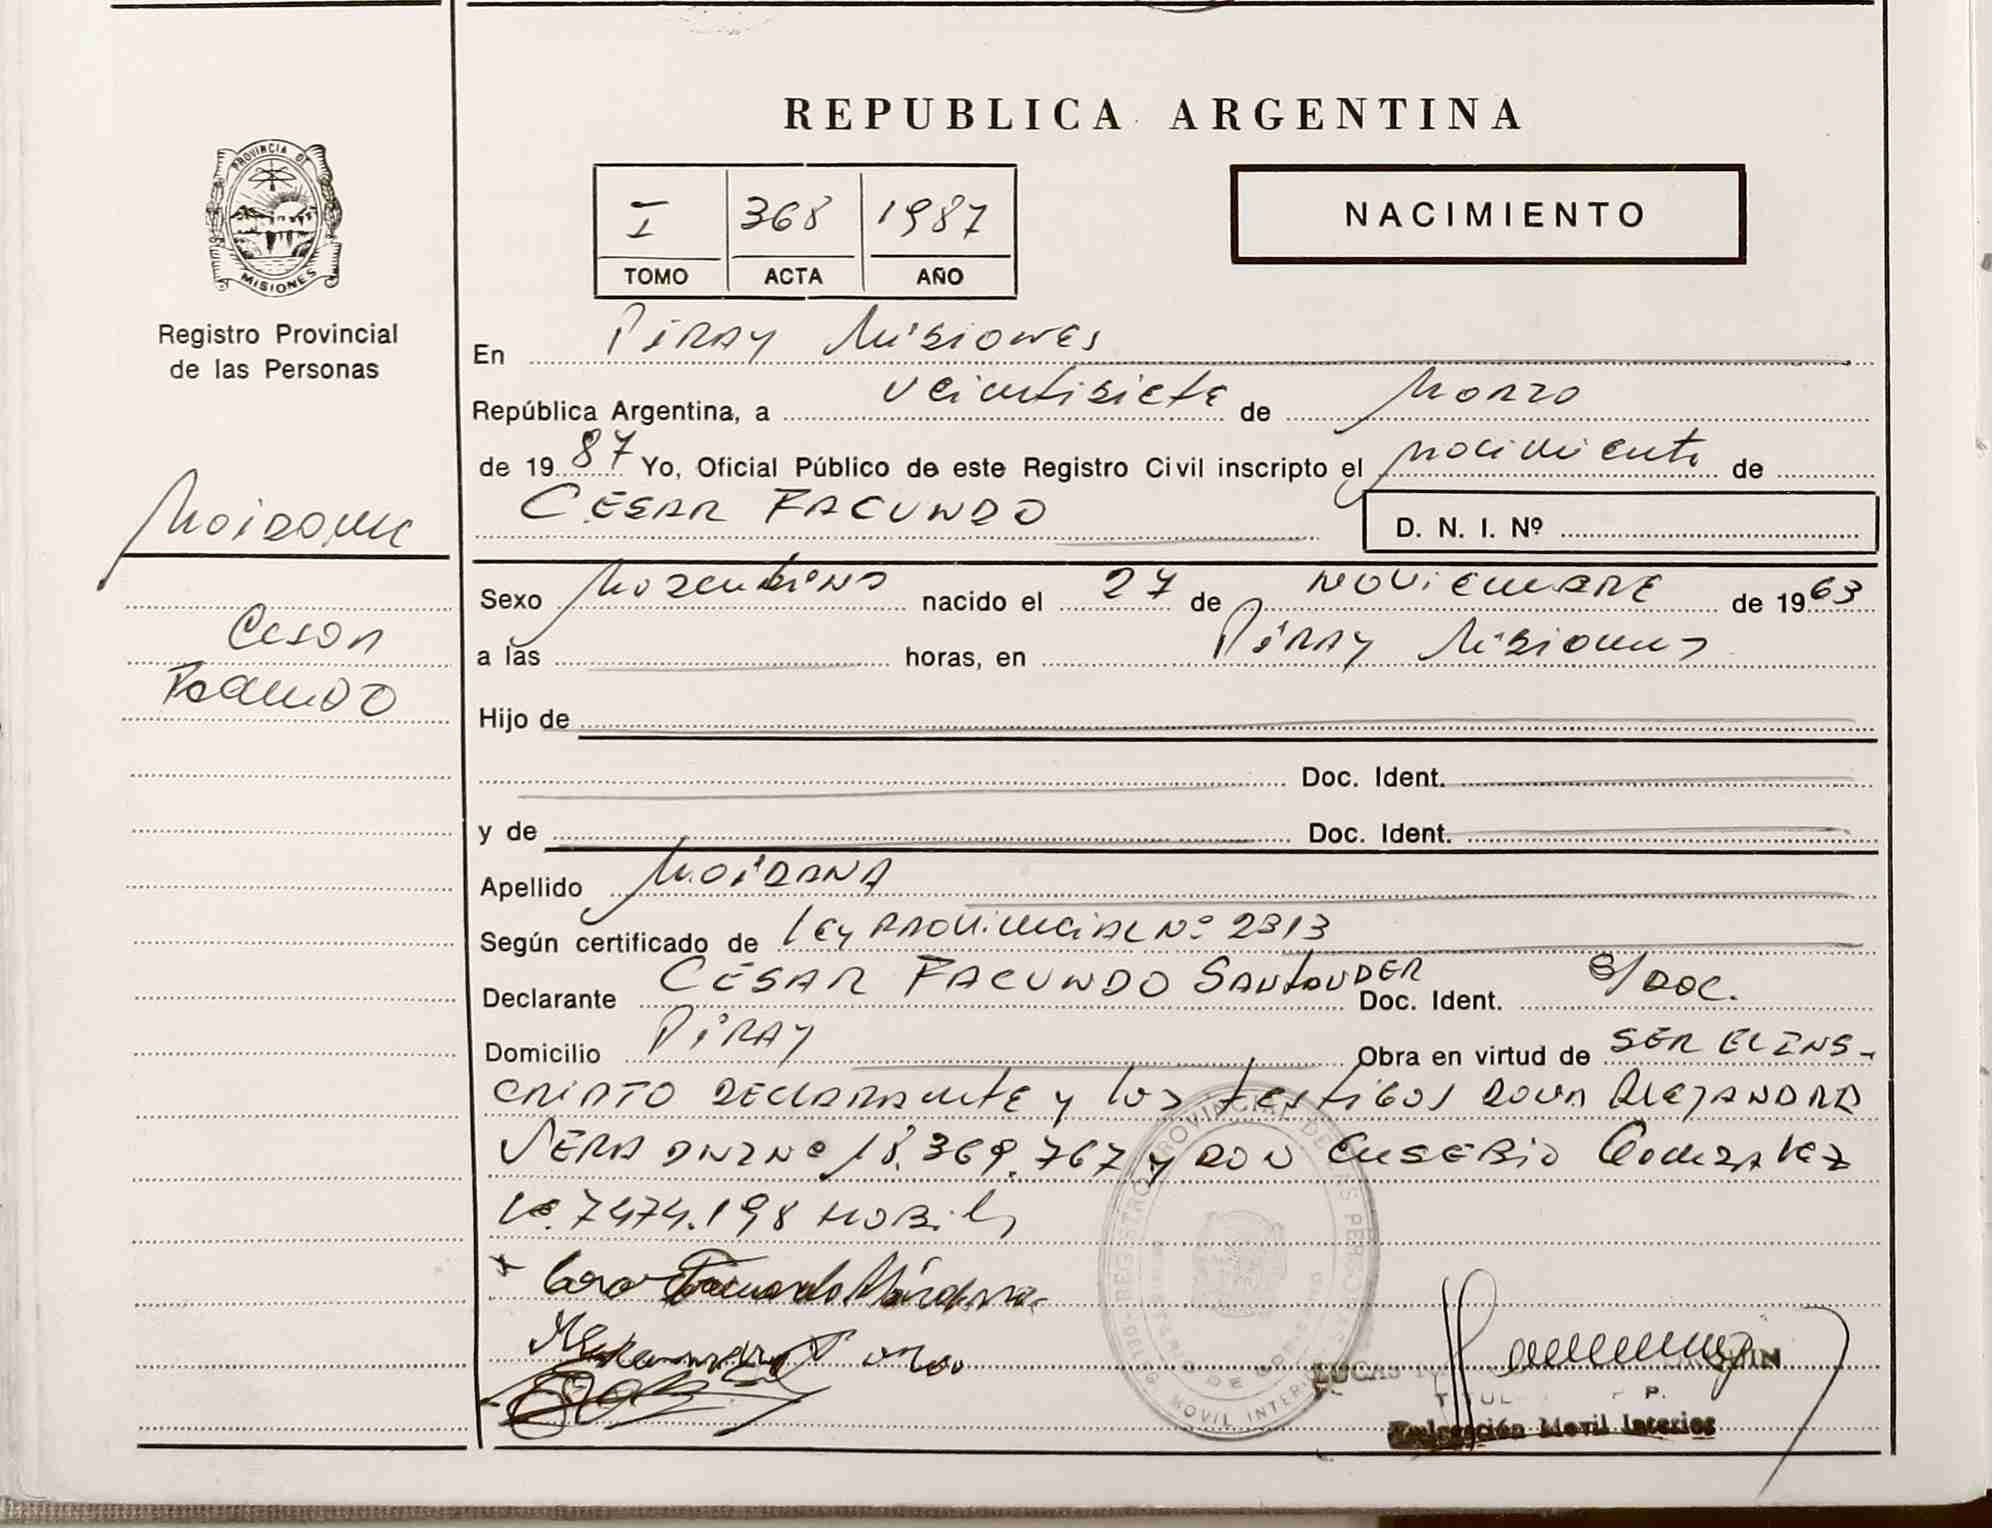 REPUBLICA ARGENTINA
PROVINCIA DE
MISIONES
Registro Provincial
de las Personas
I 368 1987
TOMO ACTA AÑO
NACIMIENTO
En Piray Misiones
República Argentina, a veintisiete de Marzo
de 19 87 Yo, Oficial Público de este Registro Civil inscripto el nacimiento de
CESAR FACUNDO
D. N. I. Nº
Maidana
Cesar
Facundo
Sexo Masculino nacido el 27 de NOVIEMBRE de 19 63
a las horas, en Piray Misiones
Hijo de
Doc. Ident.
y de Doc. Ident.
Apellido MAIDANA
Según certificado de Ley PROVINCIAL Nº 2313
Declarante CESAR FACUNDO SantanDER Doc. Ident. S/DOC.
Domicilio PiRAY Obra en virtud de SER EL INS-
CRIPTO DECLARANTE y los testigos DOÑA ALEJANDRA
VERA DNI Nº 18.369.767 y DON EUSEBIO Gonzalez
7474.198
Facundo Maidana
REGISTRO PROVINCIAL DE LAS PERSONAS
MOVIL INTERIOR
LUCAS
P.
Delegación Movil Interior